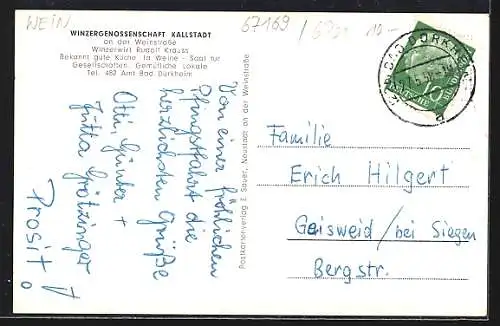 WEIN
67169 / 6702 10.-
WINZERGENOSSENSCHAFT KALLSTADT
an der Weinstraße
Winzerwirt Rudolf Krauss
Bekannt gute Küche la Weine - Saal für
Gesellschaften. Gemütliche Lokale
Tel. 482 Amt Bad Dürkheim
Von einer fröhlichen
Pfingstfahrt die
herzlichsten Grüße
Otti, Günter +
Jutta Grötzinger
Prosit!
Postkartenverlag E. Sauer, Neustadt an der Weinstraße
BAD DÜRKHEIM
10
Familie
Erich Hilgert
Geisweid / bei Siegen
Bergstr.